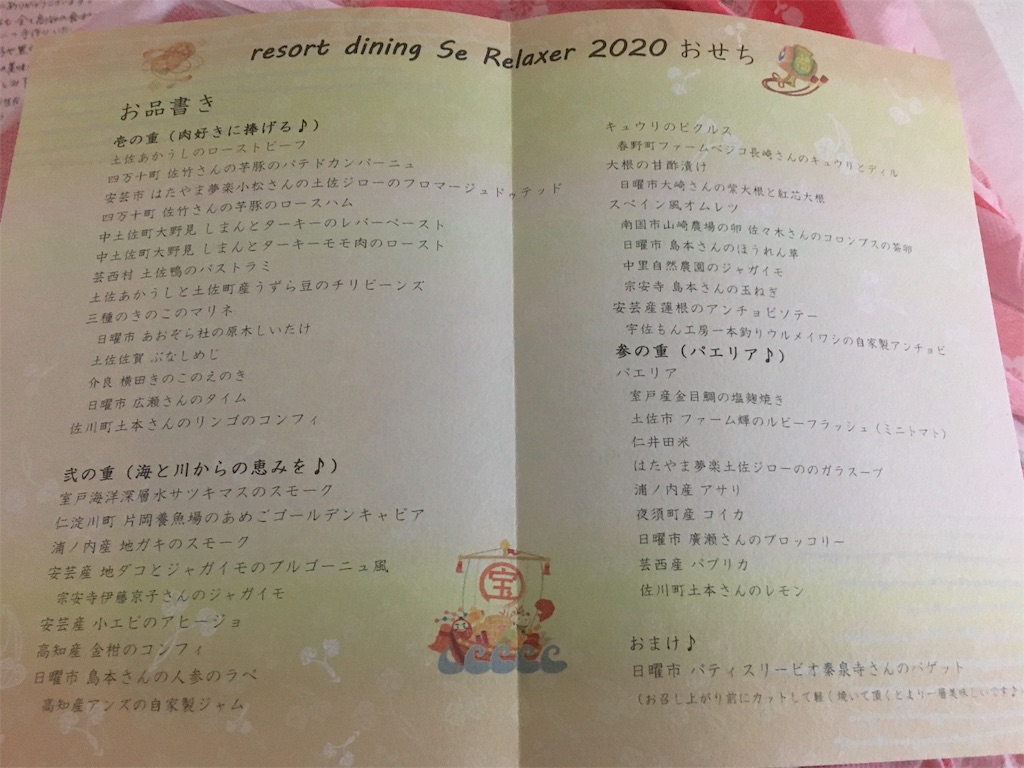 resort dining Se Relaxer 2020 おせち
お品書き
壱の重（肉好きに捧げる♪）
土佐あかうしのローストビーフ
四万十町 佐竹さんの芋豚のパテドカンパーニュ
安芸市 はたやま夢楽小松さんの土佐ジローのフロマージュドゥテッド
四万十町 佐竹さんの芋豚のロースハム
中土佐町大野見 しまんとターキーのレバーペースト
中土佐町大野見 しまんとターキーモモ肉のロースト
芸西村 土佐鴨のパストラミ
土佐あかうしと土佐町産うずら豆のチリビーンズ
三種のきのこのマリネ
日曜市 あおぞら社の原木しいたけ
土佐佐賀 ぶなしめじ
介良 横田きのこのえのき
日曜市 広瀬さんのタイム
佐川町土本さんのリンゴのコンフィ
弐の重（海と川からの恵みを♪）
室戸海洋深層水サツキマスのスモーク
仁淀川町 片岡養魚場のあめごゴールデンキャビア
浦ノ内産 地ガキのスモーク
安芸産 地ダコとジャガイモのブルゴーニュ風
宗安寺伊藤京子さんのジャガイモ
安芸産 小エビのアヒージョ
高知産 金柑のコンフィ
日曜市 島本さんの人参のラペ
高知産アンズの自家製ジャム
キュウリのピクルス
春野町ファームベジコ長崎さんのキュウリとディル
大根の甘酢漬け
日曜市大崎さんの紫大根と紅芯大根
スペイン風オムレツ
南国市山崎農場の卵 佐々木さんのコロンブスの茶卵
日曜市 島本さんのほうれん草
中里自然農園のジャガイモ
宗安寺 島本さんの玉ねぎ
安芸産蓮根のアンチョビソテー
宇佐もん工房一本釣りウルメイワシの自家製アンチョビ
参の重（パエリア♪）
パエリア
室戸産金目鯛の塩麹焼き
土佐市 ファーム輝のルビーフラッシュ（ミニトマト）
仁井田米
はたやま夢楽土佐ジローののガラスープ
浦ノ内産 アサリ
夜須町産 コイカ
日曜市 廣瀬さんのブロッコリー
芸西産 パプリカ
佐川町土本さんのレモン
宝
おまけ♪
日曜市 パティスリービオ秦泉寺さんのバゲット
（お召し上がり前にカットして軽く焼いて頂くとより一層美味しいです♪）